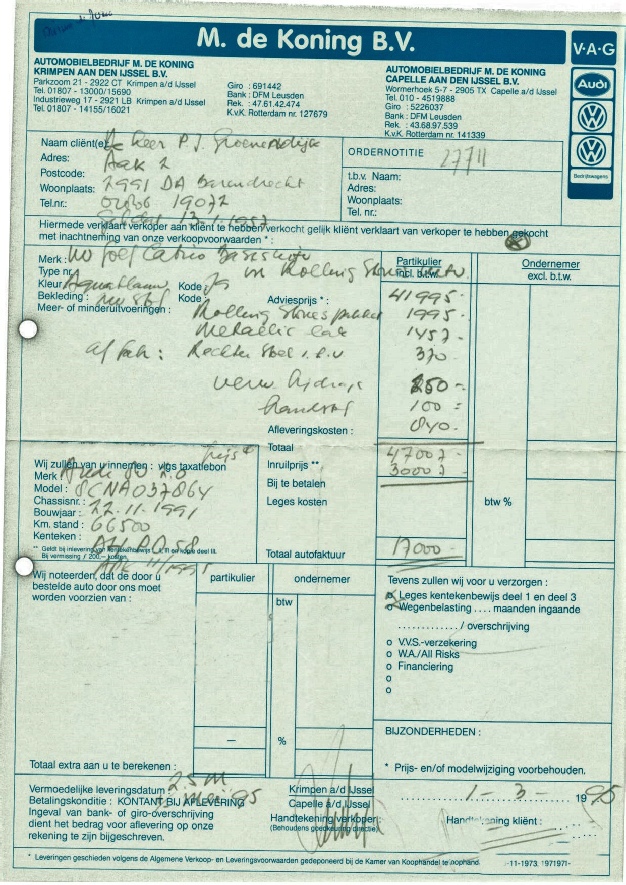 M. de Koning B.V.
V·A·G
Audi
Bedrijfswagens
AUTOMOBIELBEDRIJF M. DE KONING
KRIMPEN AAN DEN IJSSEL B.V.
Parkzoom 21 - 2922 CT Krimpen a/d IJssel
Tel. 01807 - 13000/15690
Industrieweg 17 - 2921 LB Krimpen a/d IJssel
Tel. 01807 - 14155/16021
Giro : 691442
Bank : DFM Leusden
Rek. : 47.61.42.474
K.v.K. Rotterdam nr. 127679
AUTOMOBIELBEDRIJF M. DE KONING
CAPELLE AAN DEN IJSSEL B.V.
Wormerhoek 5-7 - 2905 TX Capelle a/d IJssel
Tel. 010 - 4519888
Giro : 5226037
Bank : DFM Leusden
Rek. : 43.68.97.539
K.v.K. Rotterdam nr. 141339
Naam cliënt(e): De heer P.J. Groenendijk
Adres: Aak 2
Postcode: 2991 DA Barendrecht
Woonplaats:
Tel.nr.: 19072
ORDERNOTITIE 27711
t.b.v. Naam:
Adres:
Woonplaats:
Tel. nr.:
Hiermede verklaart verkoper aan kliënt te hebben verkocht gelijk kliënt verklaart van verkoper te hebben gekocht
met inachtneming van onze verkoopvoorwaarden * :
Partikulier
incl. b.t.w.
Ondernemer
excl. b.t.w.
Merk : VW Golf Cabrio Basis
Type nr. Rolling Stones
Kleur: Aquablauw Kode:
Bekleding: Kode:
Adviesprijs * : 41995-
Meer- of minderuitvoeringen : Rolling Stones pakket 1995-
Metallic lak 1457-
af fab : Rechter stoel 370-
250-
100-
Afleveringskosten : 840-
Totaal 47007
Wij zullen van u innemen : vlgs taxatiebon
Inruilprijs **, 30007
Merk : Audi 80 2.0
Bij te betalen
Model : 8CNA037864
Chassisnr. :
Leges kosten
btw %
Bouwjaar : 22-11-1991
Km. stand : 66500
Kenteken :
** Geldt bij inlevering van kentekenbewijs I, II en kopie deel III.
Bij vermissing / 200,- kosten.
APK 11/1995
Totaal autofaktuur 17000-
Wij noteerden, dat de door u
bestelde auto door ons moet
worden voorzien van :
partikulier
ondernemer
btw
%
Tevens zullen wij voor u verzorgen :
Leges kentekenbewijs deel 1 en deel 3
Wegenbelasting .... maanden ingaande
............ / overschrijving
o V.V.S.-verzekering
o W.A./All Risks
o Financiering
o
o
BIJZONDERHEDEN :
Totaal extra aan u te berekenen :
* Prijs- en/of modelwijziging voorbehouden.
Vermoedelijke leveringsdatum
mei 95
Betalingskonditie : KONTANT BIJ AFLEVERING
Ingeval van bank- of giro-overschrijving
dient het bedrag voor aflevering op onze
rekening te zijn bijgeschreven.
Krimpen a/d IJssel
Capelle a/d IJssel
1 - 3 - 1995
Handtekening verkoper:
(Behoudens goedkeuring directie)
Handtekening kliënt :
* Leveringen geschieden volgens de Algemene Verkoop- en Leveringsvoorwaarden gedeponeerd bij de Kamer van Koophandel te
-11-1973, 1971971-